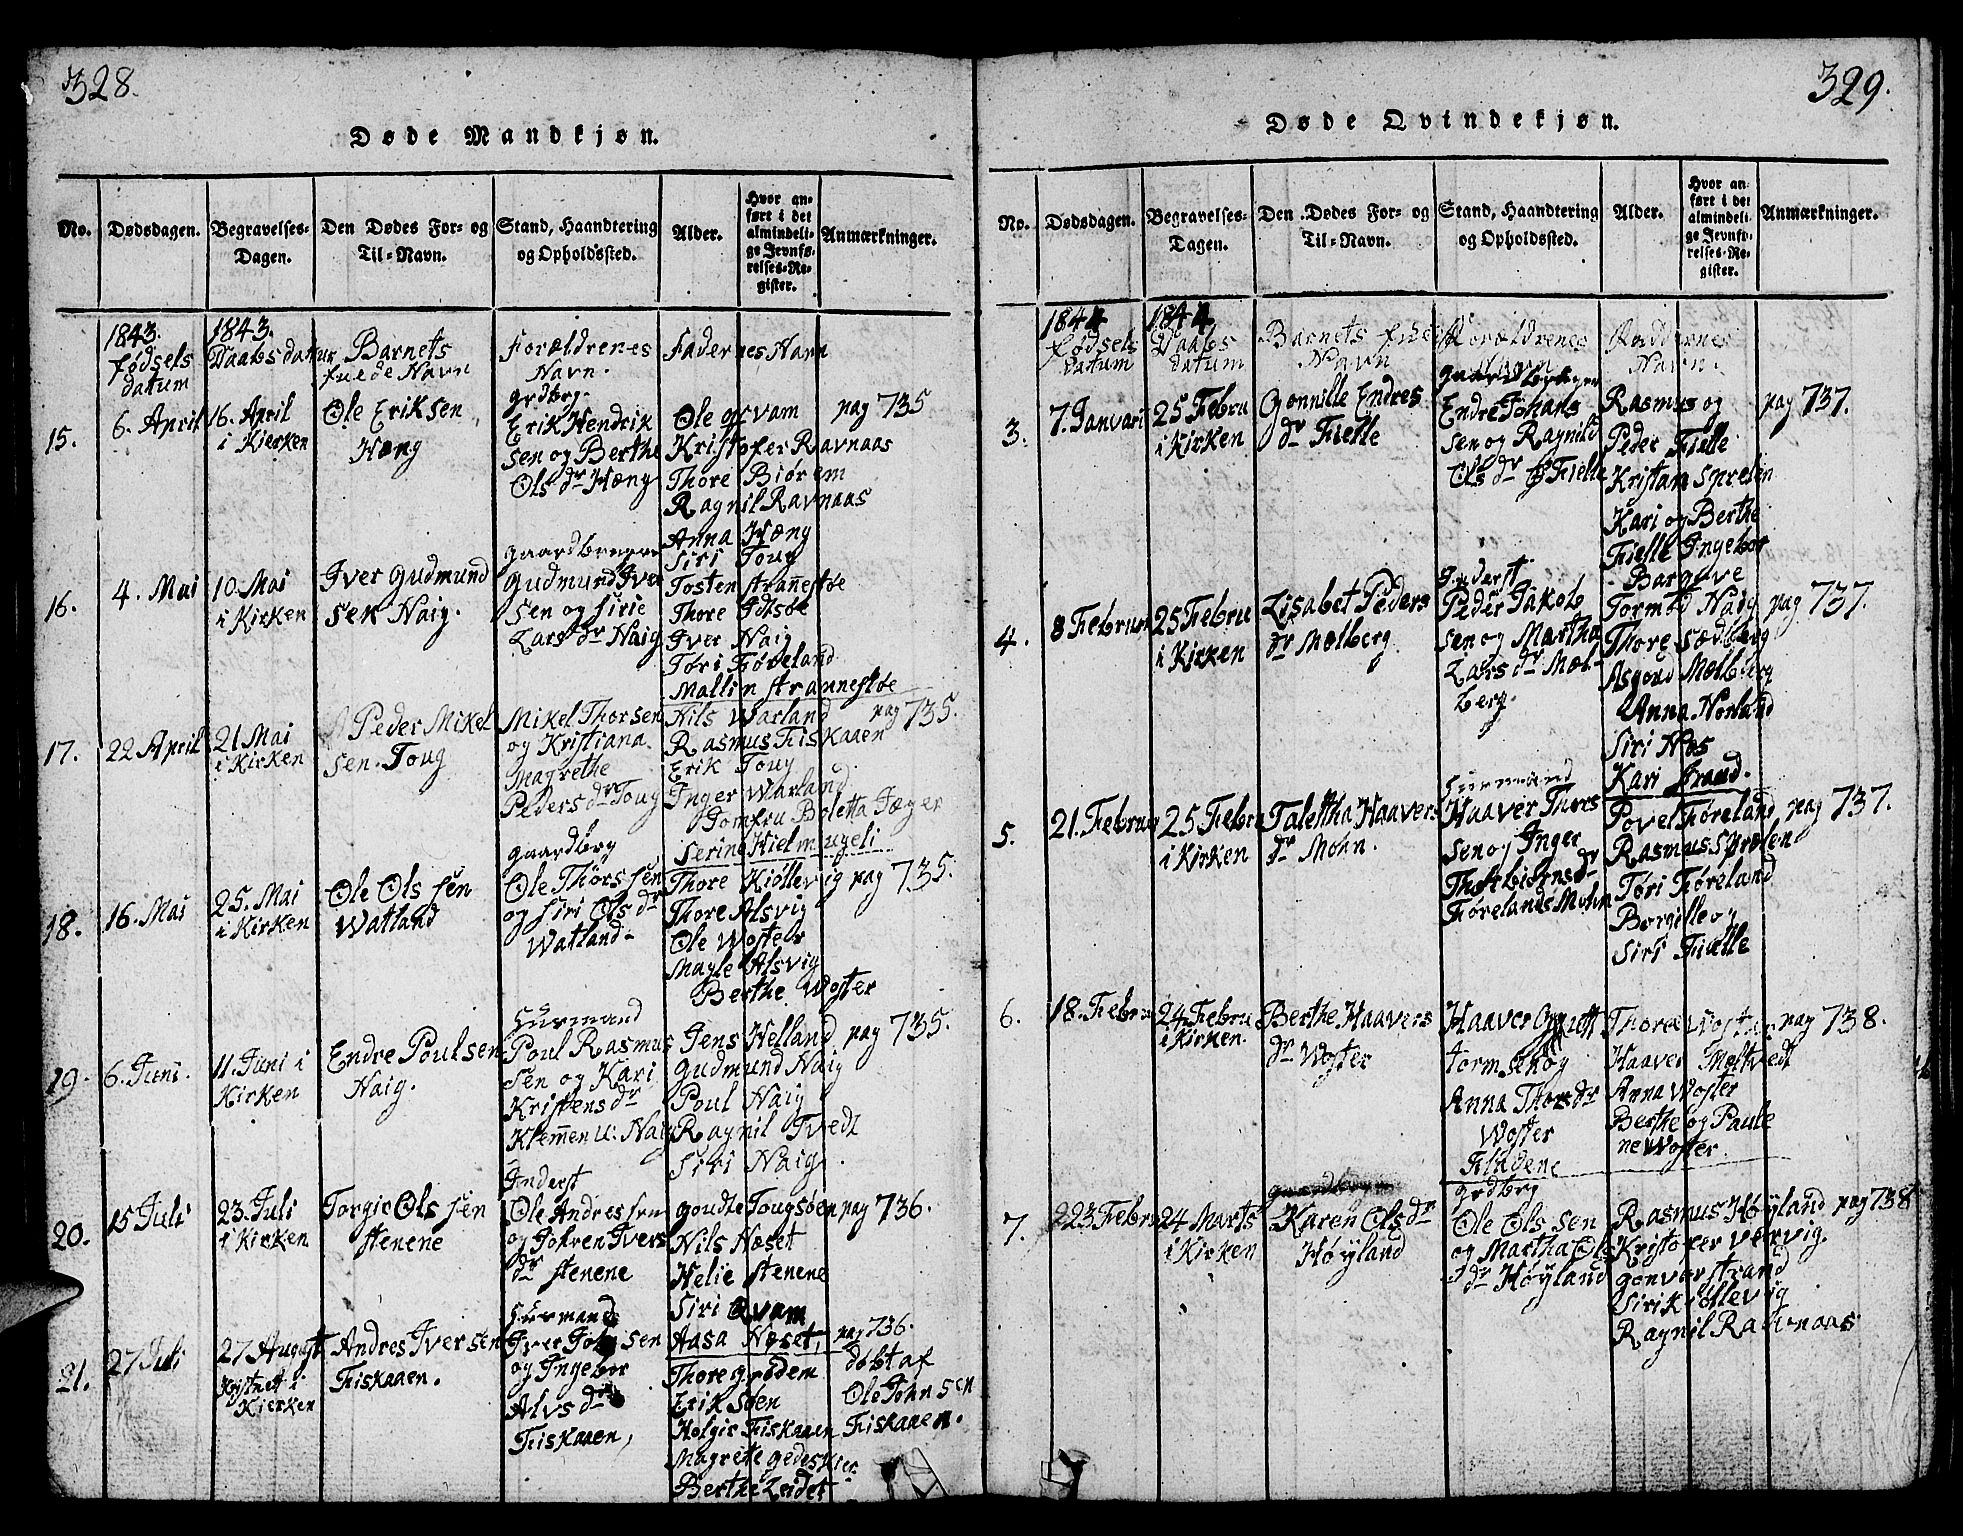 328.
Døde Mandkjøn.
No.
Dødsdagen.
Begravelses-
Dagen.
Den Dødes For- og
Til-Navn.
Stand, Haandtering
og Opholdssted.
Alder.
Hvor an-
ført i det
almindeli-
ge Jevnfø-
relses-Re-
gister.
Anmærkninger.
1843.
fødsels
datum
1843.
Daabs datum
Barnets
fulde Navn
Forældrenes
Navn.
Fadernes Navn
15.
6. April
16. April
i Kierken
Ole Eriksen
Hæng
grdbrg.
Erik Hendrik
sen og Berthe
Ols dr Hæng
Ole qvam
Kristofer Ravnaas
Thore Biørem
Ragnil Ravnaas
Anna Hæng
pag 735
16.
4. Mai
10. Mai
i Kirken
Iver Gudmund
sen Naig.
Gudmund Iver
sen og Sirie
Lars dr Naig
Siri Toug
Tosten Stranestøe
Thore
Iver Naig
Tøri Føreland
Mallin Strannestøe
17.
22 April
21 Mai
i Kirken
Peder Mikel
sen. Toug
Mikel Thorsen
og Kristiana
Magrethe
Peders dr Toug
Nils Warland
Rasmus Fiskaaen
Erik Toug
Inger Warland
Jomfru Boletta Jæger
Serina Hielmugeli
pag 735.
18.
16. Mai
25. Mai
i Kirken
Ole Ols sen
Watland
gaardbrg
Ole Thors sen
og Siri Ols dr
Watland
Thore Kiøllevig
Thore Alsvig
Ole Woster
Magle Alsvig
Berthe Woster
pag 735.
19.
6. Juni.
11. Juni i
Kirken
Endre Poulsen
Naig.
Huusmand
Poul Rasmus
sen og Kari
Kristens dr
Klemmen u: Naig
Jens Helland
Gudmund Naig
Poul Naig
Ragnil Tvedt
Siri Naig.
pag 735.
20.
15 Juli
23. Juli
i Kirken
Torgir Ols sen
Stenene
Inderst
Ole Andres sen
og Jofren Ivers
dr Stenene
Goudte Tougsøen
Nils Næset
Helie Stenene
Siri Qvam
Aasa Næset,
pag 736.
21.
27 Juli
27 August
Kristnet i
Kierken
Andres Iversen
Fiskaaen.
Huusmand
Iver John sen
og Ingebor
Alvs dr
Fiskaaen,
Thore Grødem
Erik Søen
Holgir Fiskaaen
Magrete Gedeskier
Berthe Leidet
pag 736.
døbt af
Ole John sen
Fiskaaen.
329.
Døde Qvindekjøn.
No.
Dødsdagen.
Begravelses-
Dagen.
Den Dødes For- og
Til-Navn.
Stand, Haandtering
og Opholdssted.
Alder.
Hvor an-
ført i det
almindeli-
ge Jevnfø-
relses-Re-
gister.
Anmærkninger.
1844
fødsels
datum
1844
Daabs
datum
Barnets fulde
Navn
Forældrenes
Navn
Faddernes
Navn.
3.
7. Januari
25 Febru
i Kirken
Gonnille Endres
dr Fielle
Endre Johans
sen og Ragnild
Ols dr Fielle
Rasmus og
Peder Fielle
Kristian Sprelen
Kari og Berthe
Fielle Ingebor
Bargave
pag 737.
4.
8 Februa
25 Febru
i Kirken
Lisabet Peders
dr Mælberg
Inderst.
Peder Jakob
sen og Martha
Lars dr Mæl-
berg.
Tormod Naig
Thore Sædberg
Asgoud Mælberg
Anna Norland
Siri Næs
Kari Strand.
pag 737.
5.
21. Februa
25 Febru
i Kirken
Talettha Haavers
dr Moen.
Huusmand
Haaver Thors
sen og Inger
Thorbiørns dr
Førelands Mohn
Povel Føreland
Rasmus Sprølen
Tøri Føreland
Borgille og
Siri Fielle
pag 737.
6.
18. Febru
24 Febru
i Kirken
Berthe Haavers
dr Woster
Haaver
torm sen og
Anna Thors dr
Woster
Thore Woster
Haaver Meltvedt
Anna Woster
Berthe og Paule
ne Woster.
pag 738.
7.
23. Febru
24 Marts
i Kirken
Karen Ols dr
Høyland
grdbrg
Ole Ols sen
og Martha Ols
dr Høyland
Rasmus Høyland
Kristofer Værvig.
Gonvor Strand
Siri Kiøllevig
Ragnil Ravnaas
pag 738